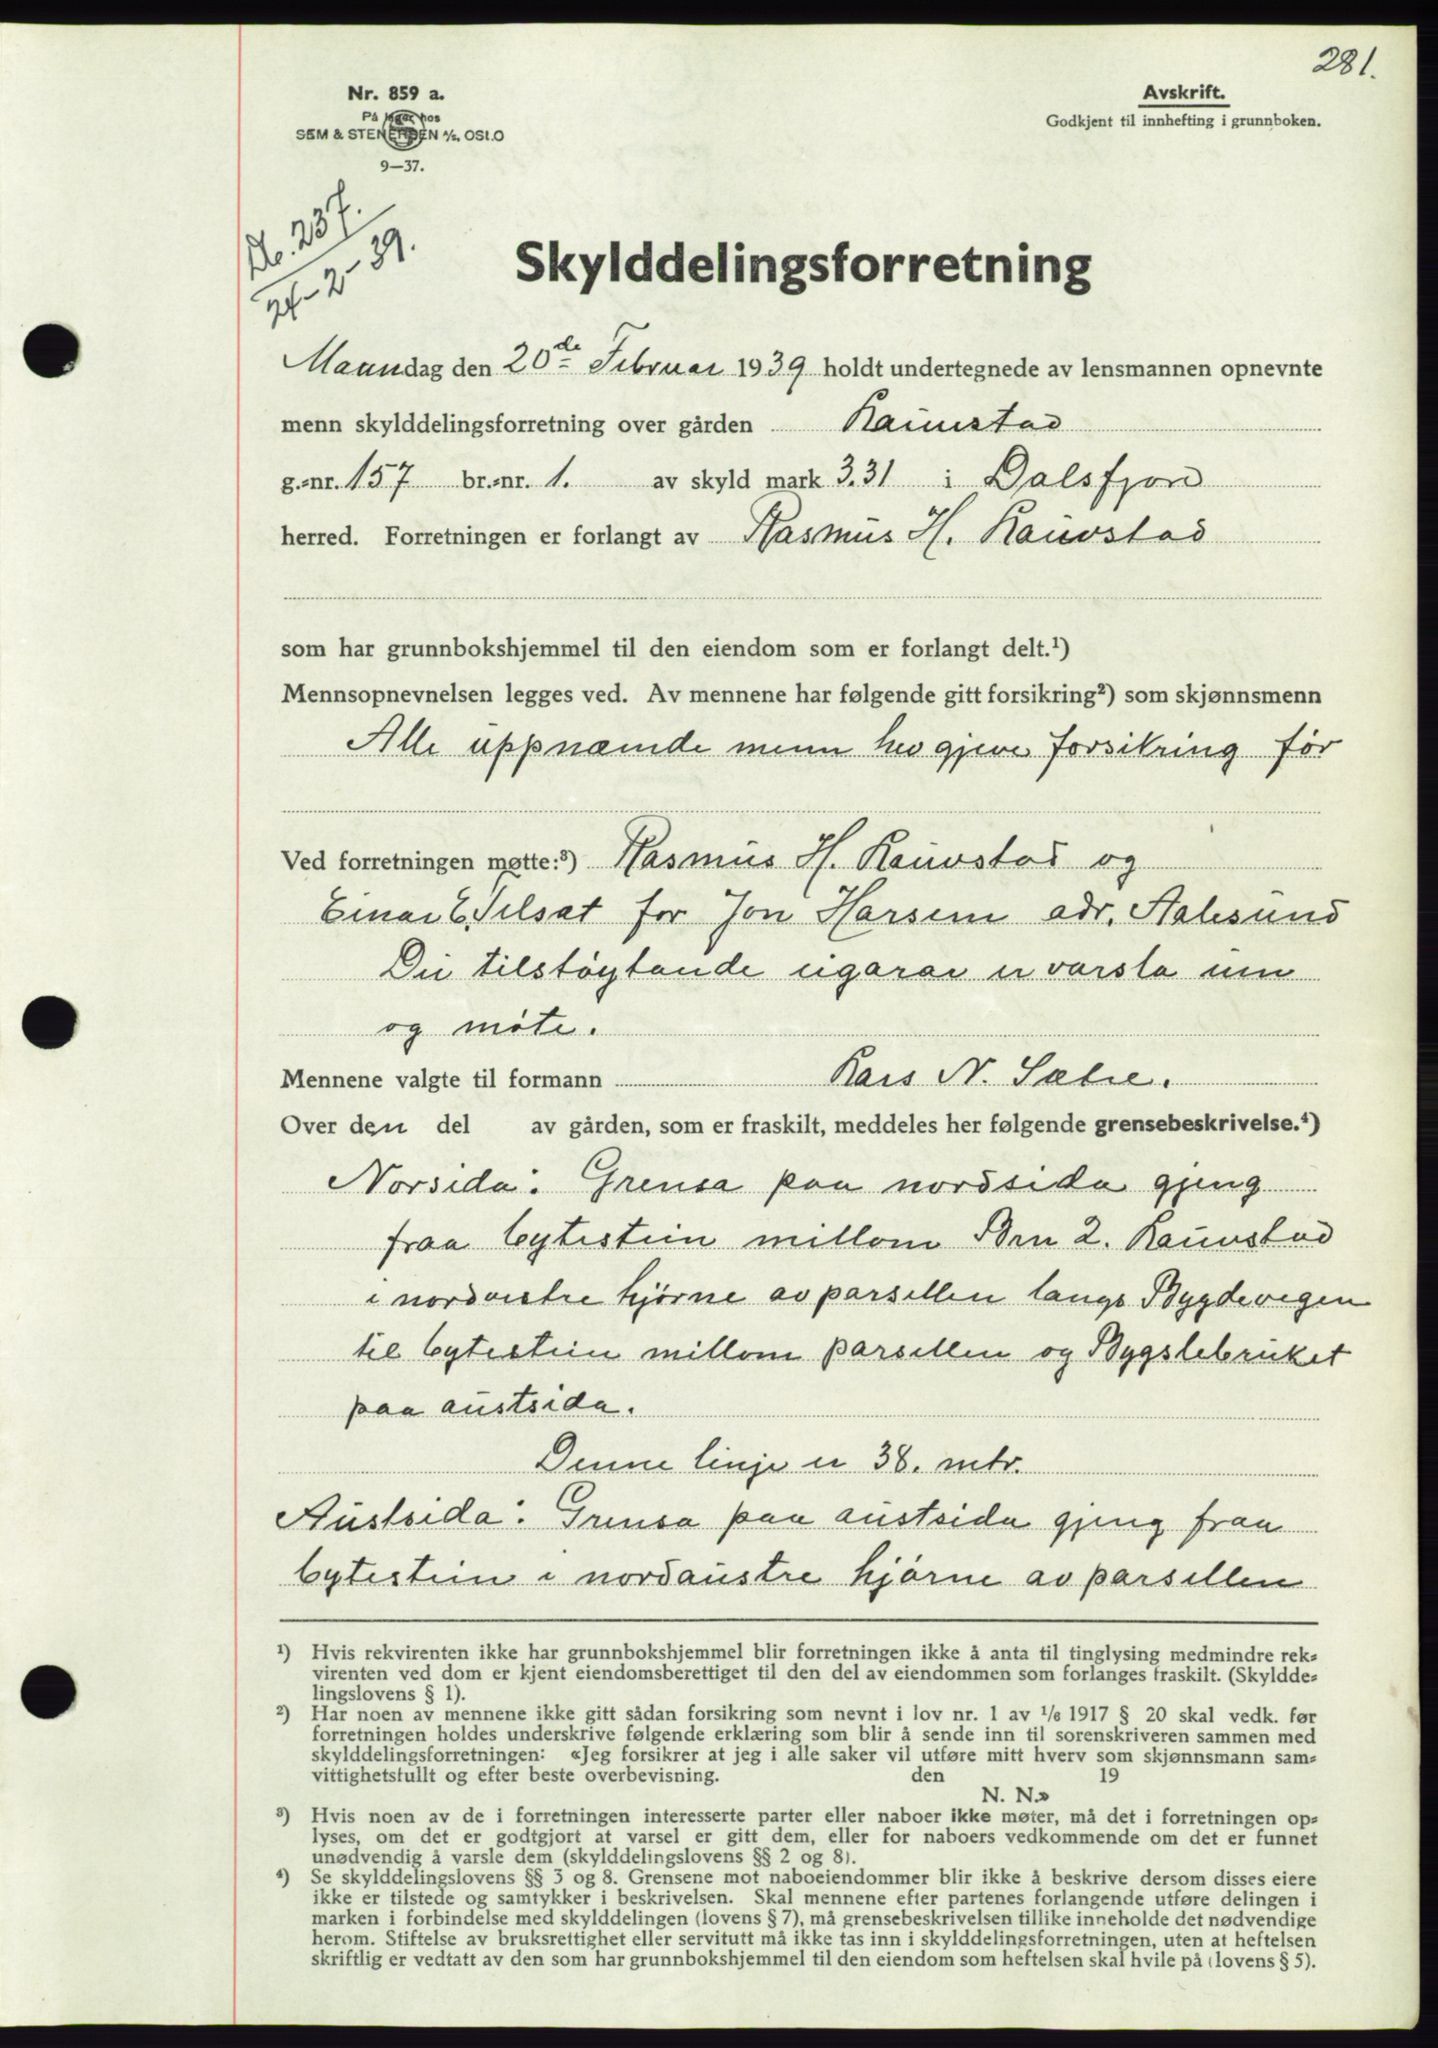 281.
Nr. 859 a.
På lager hos
SEM & STENERSEN A/S, OSLO
9—37.
Avskrift.
Godkjent til innhefting i grunnboken.
No. 237.
24-2-39.
Skylddelingsforretning
Maandag den 20de Februar 1939 holdt undertegnede av lensmannen opnevnte
menn skylddelingsforretning over gården Lauvstad
g.-nr. 157 br.-nr. 1. av skyld mark 3.31 i Dalsfjord
herred. Forretningen er forlangt av Rasmus H. Lauvstad
som har grunnbokshjemmel til den eiendom som er forlangt delt.¹)
Mennsopnevnelsen legges ved. Av mennene har følgende gitt forsikring²) som skjønnsmenn
Alle uppnæmde menn hev gjeve forsikring før
Ved forretningen møtte:³) Rasmus H. Lauvstad og
Einar E. for Jon Harsem adr. Aalesund
Dei tilstøytande eigarar er varsla um
og møte.
Mennene valgte til formann Lars N. Sætre.
Over den del av gården, som er fraskilt, meddeles her følgende grensebeskrivelse.⁴)
Norsida: Grensa paa nordsida gjeng
fraa bytestein millom Brn 2. Lauvstad
i nordvestre hjørne av parsellen langs Bygdevegen
til bytestein millom parsellen og Bygslebruket
paa austsida.
Denne linje er 38. mtr.
Austsida: Grensa paa austsida gjeng fraa
bytestein i nordaustre hjørne av parsellen
¹) Hvis rekvirenten ikke har grunnbokshjemmel blir forretningen ikke å anta til tinglysing medmindre rek-
virenten ved dom er kjent eiendomsberettiget til den del av eiendommen som forlanges fraskilt. (Skyldde-
lingslovens § 1).
²) Har noen av mennene ikke gitt sådan forsikring som nevnt i lov nr. 1 av ¹/₆ 1917 § 20 skal vedk. før
forretningen holdes underskrive følgende erklæring som blir å sende inn til sorenskriveren sammen med
skylddelingsforretningen: «Jeg forsikrer at jeg i alle saker vil utføre mitt hverv som skjønnsmann sam-
vittighetsfullt og efter beste overbevisning. den 19
N. N.»
³) Hvis noen av de i forretningen interesserte parter eller naboer ikke møter, må det i forretningen op-
lyses, om det er godtgjort at varsel er gitt dem, eller for naboers vedkommende om det er funnet
unødvendig å varsle dem (skylddelingslovens §§ 2 og 8).
⁴) Se skylddelingslovens §§ 3 og 8. Grensene mot naboeiendommer blir ikke å beskrive dersom disses eiere
ikke er tilstede og samtykker i beskrivelsen. Skal mennene efter partenes forlangende utføre delingen i
marken i forbindelse med skylddelingen (lovens § 7), må grensebeskrivelsen tillike inneholde det nødvendige
herom. Stiftelse av bruksrettighet eller servitutt må ikke tas inn i skylddelingsforretningen, uten at heftelsen
skriftlig er vedtatt av den som har grunnbokshjemmel til den eiendom som heftelsen skal hvile på (lovens § 5).